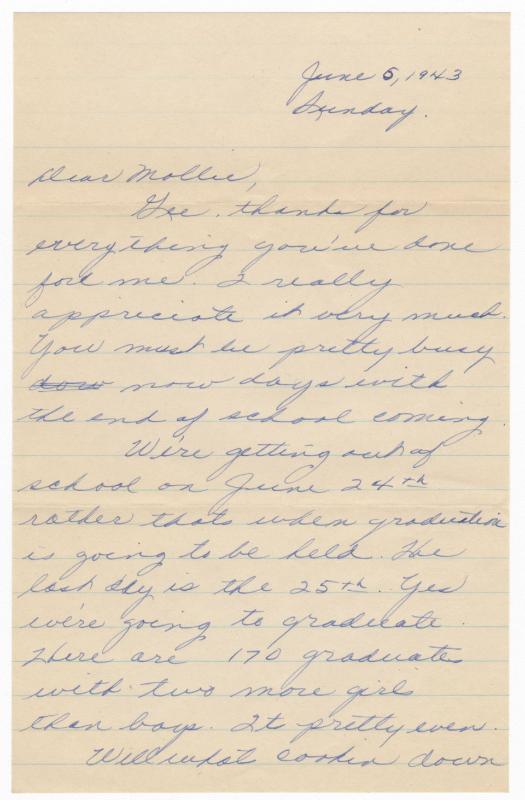 June 5, 1943
Sunday.
Dear Mollie,
Gee, thanks for
everything you've done
for me. I really
appreciate it very much.
You must be pretty busy
now days with
the end of school coming.
We're getting out of
school on June 24th
rather thats when graduation
is going to be held. The
last day is the 25th. Yes
we're going to graduate.
There are 170 graduates
with two more girls
than boys. It pretty even.
Well what cookin down